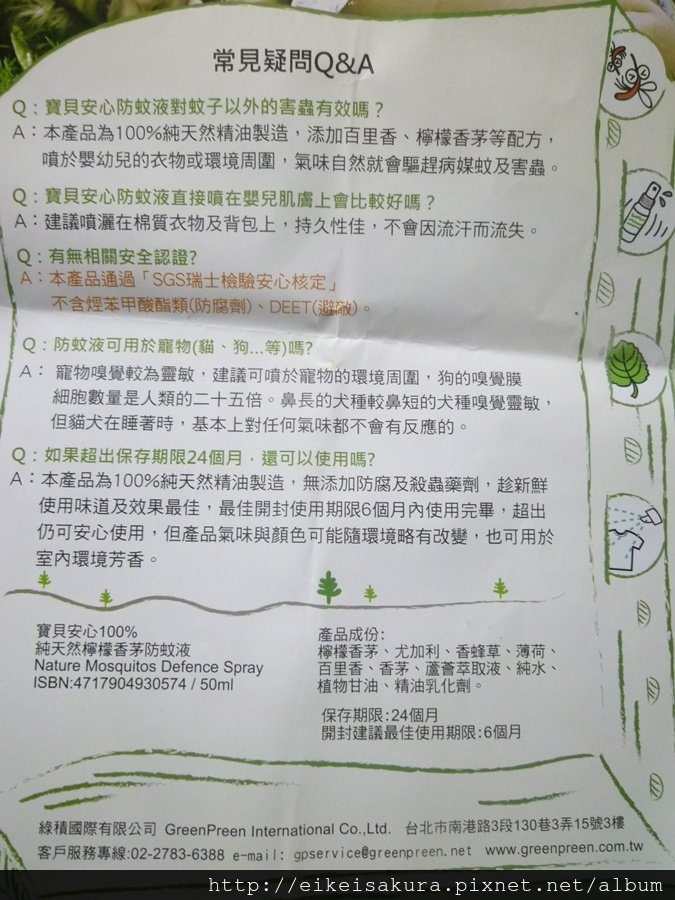 常見疑問Q&A
Q：寶貝安心防蚊液對蚊子以外的害蟲有效嗎？
A：本產品為100%純天然精油製造，添加百里香、檸檬香茅等配方，
噴於嬰幼兒的衣物或環境周圍，氣味自然就會驅趕病媒蚊及害蟲。
Q：寶貝安心防蚊液直接噴在嬰兒肌膚上會比較好嗎？
A：建議噴灑在棉質衣物及背包上，持久性佳，不會因流汗而流失。
Q：有無相關安全認證?
A：本產品通過「SGS瑞士檢驗安心核定」
不含烴苯甲酸酯類(防腐劑)、DEET(避敵)。
Q：防蚊液可用於寵物(貓、狗...等)嗎?
A：寵物嗅覺較為靈敏，建議可噴於寵物的環境周圍，狗的嗅覺膜
細胞數量是人類的二十五倍。鼻長的犬種較鼻短的犬種嗅覺靈敏，
但貓犬在睡著時，基本上對任何氣味都不會有反應的。
Q：如果超出保存期限24個月，還可以使用嗎?
A：本產品為100%純天然精油製造，無添加防腐及殺蟲藥劑，趁新鮮
使用味道及效果最佳，最佳開封使用期限6個月內使用完畢，超出
仍可安心使用，但產品氣味與顏色可能隨環境略有改變，也可用於
室內環境芳香。
寶貝安心100%
純天然檸檬香茅防蚊液
Nature Mosquitos Defence Spray
ISBN:4717904930574 / 50ml
產品成份:
檸檬香茅、尤加利、香蜂草、薄荷、
百里香、香茅、蘆薈萃取液、純水、
植物甘油、精油乳化劑。
保存期限:24個月
開封建議最佳使用期限:6個月
綠積國際有限公司 GreenPreen International Co.,Ltd. 台北市南港路3段130巷3弄15號3樓
客戶服務專線:02-2783-6388 e-mail: gpservice@greenpreen.net www.greenpreen.com.tw
http://eikeisakura.pixnet.net/album